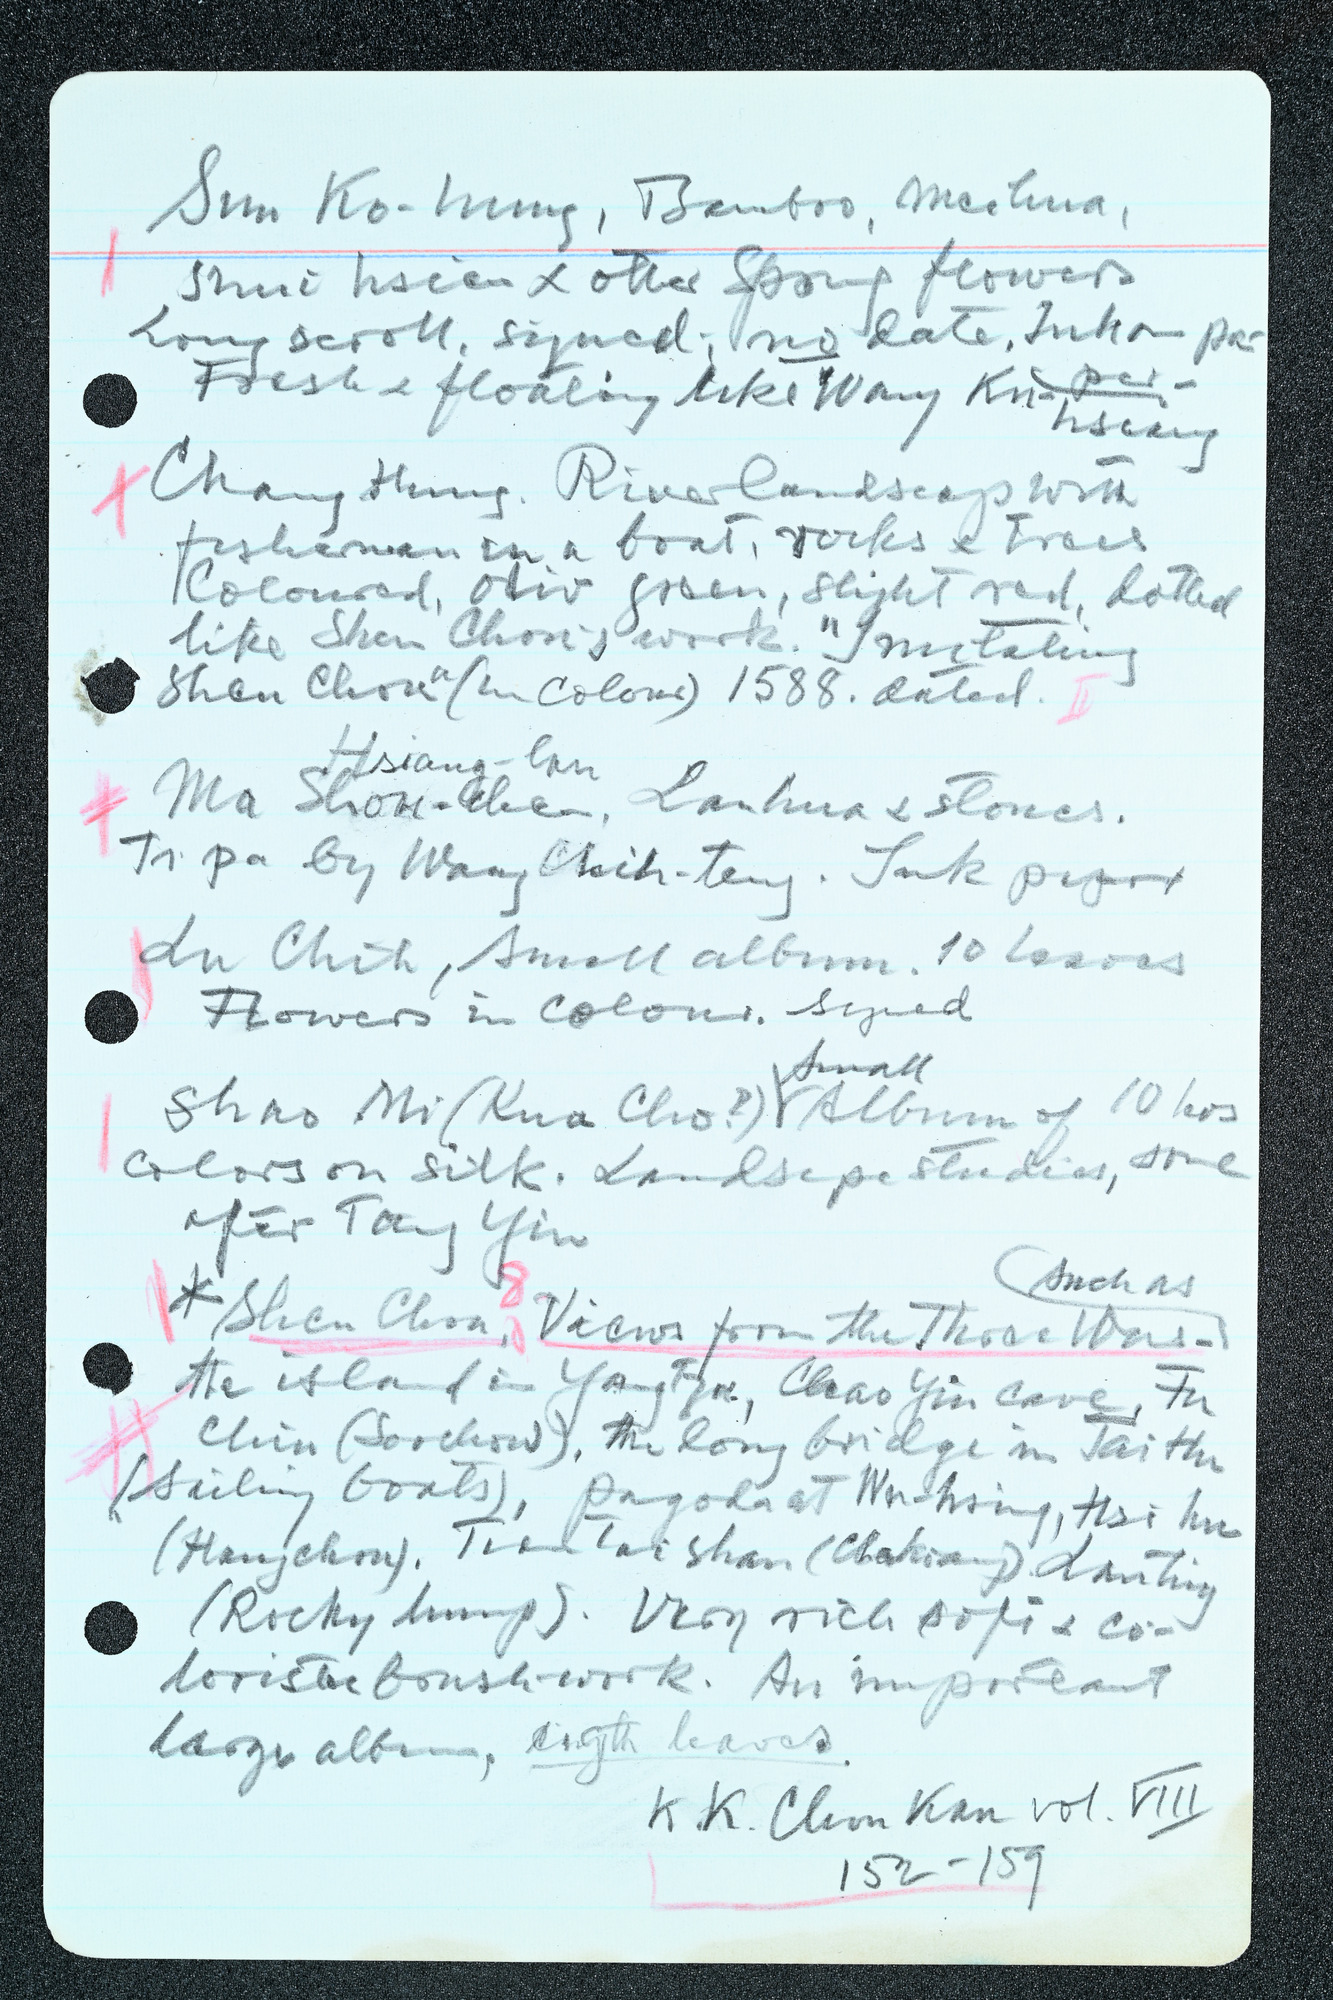 Sun Ko-hung, Bamboo, Meihua,
Shui hsien & other Spring flowers
Long scroll, signed; no date, Ink on pa-
Fresh & floating like Wang Ku- per-
hsiang
Chang Hung. River landscap with
fisherman in a boat, rocks & trees
Coloured, oliv green, slight red, dotted
like Shen Chou's work. "Imitating
Shen Chou" (in Colour) 1588. dated. II
Hsiang-lan
Ma Shou-chen, Lanhua & stones.
Ti pa by Wang Chih-teng. Ink paper
Lu Chih, Small album. 10 leaves
Flowers in colour. signed
small
Shao Mi (Kua Cho?) Album of 10 lvs
colors on silk. Landscape studies, some
after Tang Yin
such as
* Shen Chou, 8 Views from the Three Wus-
the island in Yangtze, Chao Yin cave, Fu
Chiu (Soochow), the long bridge in Tai Hu
(sailing boats), pagoda at Wu-hsing, Hsi hu
(Hangchou). Tien Tai shan (Chekiang) Lanting
(Rocky lump). Very rich soft & co-
loristic brush-work. An important
large album, eigth leaves.
K. K. Chou Kan vol. VIII
152-159